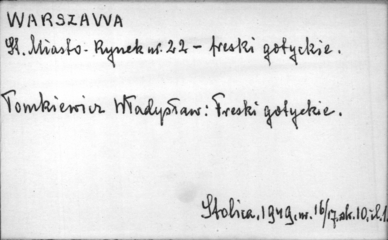 WARSZAWA
St. Miasto - Rynek nr. 22 - freski gotyckie.
Tomkiewicz Władysław: Freski gotyckie.
Stolica, 1949, nr. 16/17, str. 10, il. 1.